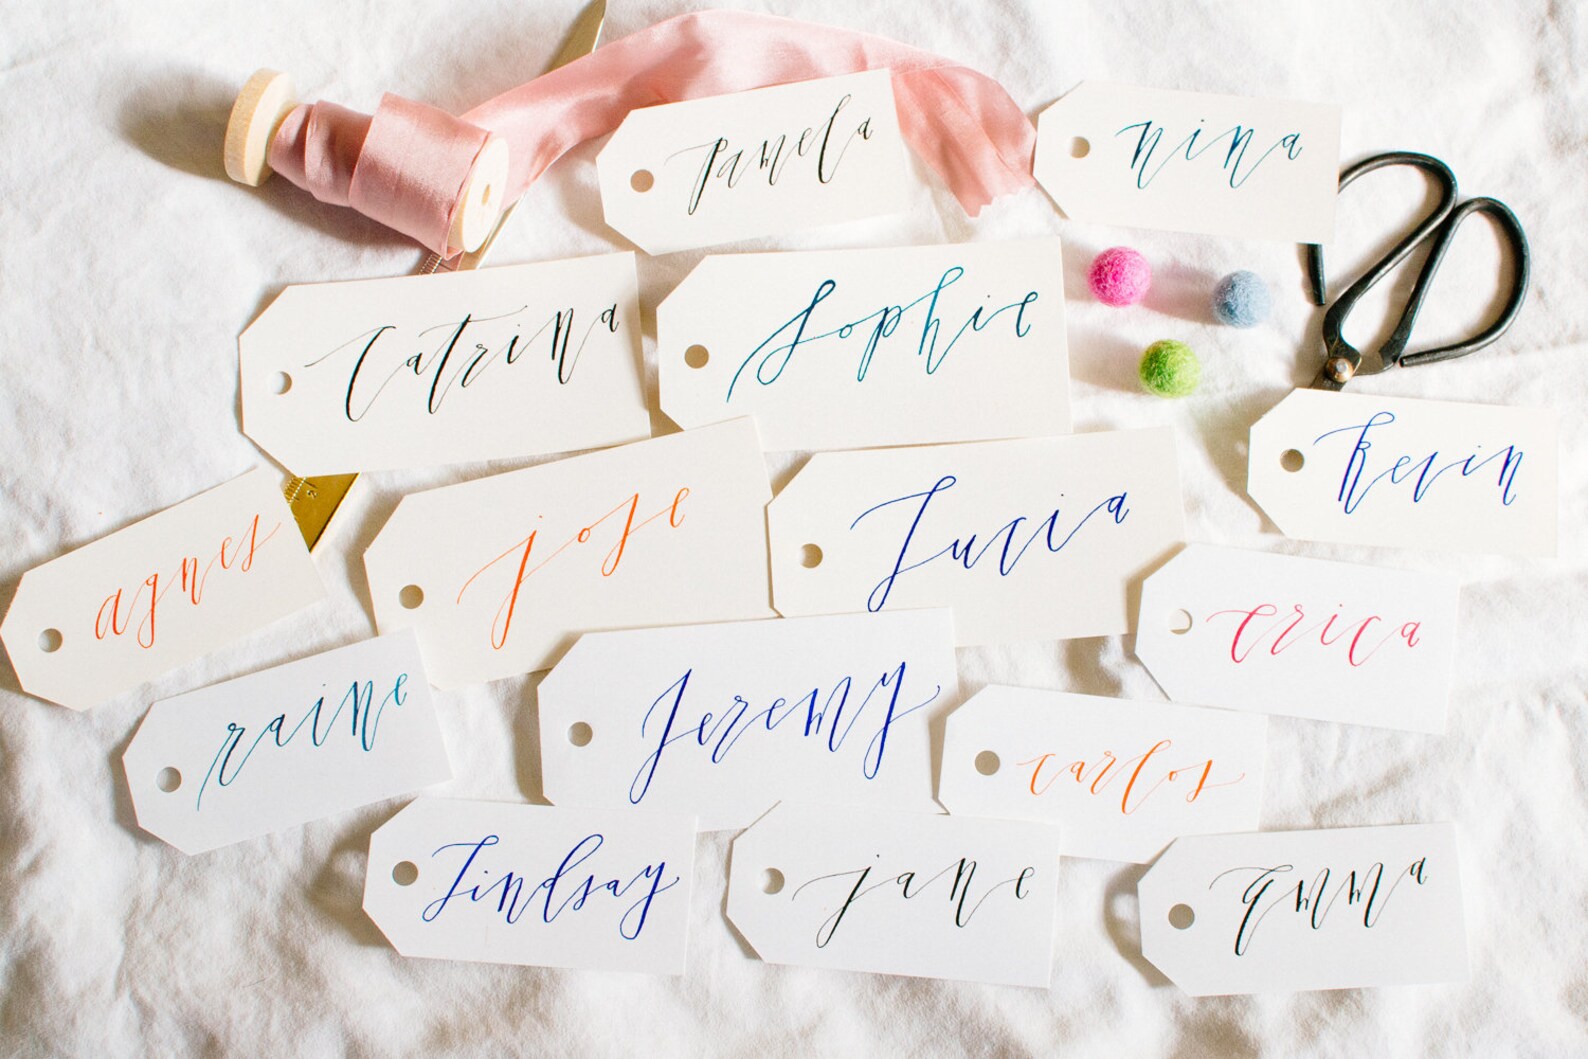 Pamela
nina
Catrina
Sophie
Kevin
agnes
jose
Lucia
erica
raine
Jeremy
carlos
Lindsay
jane
Emma